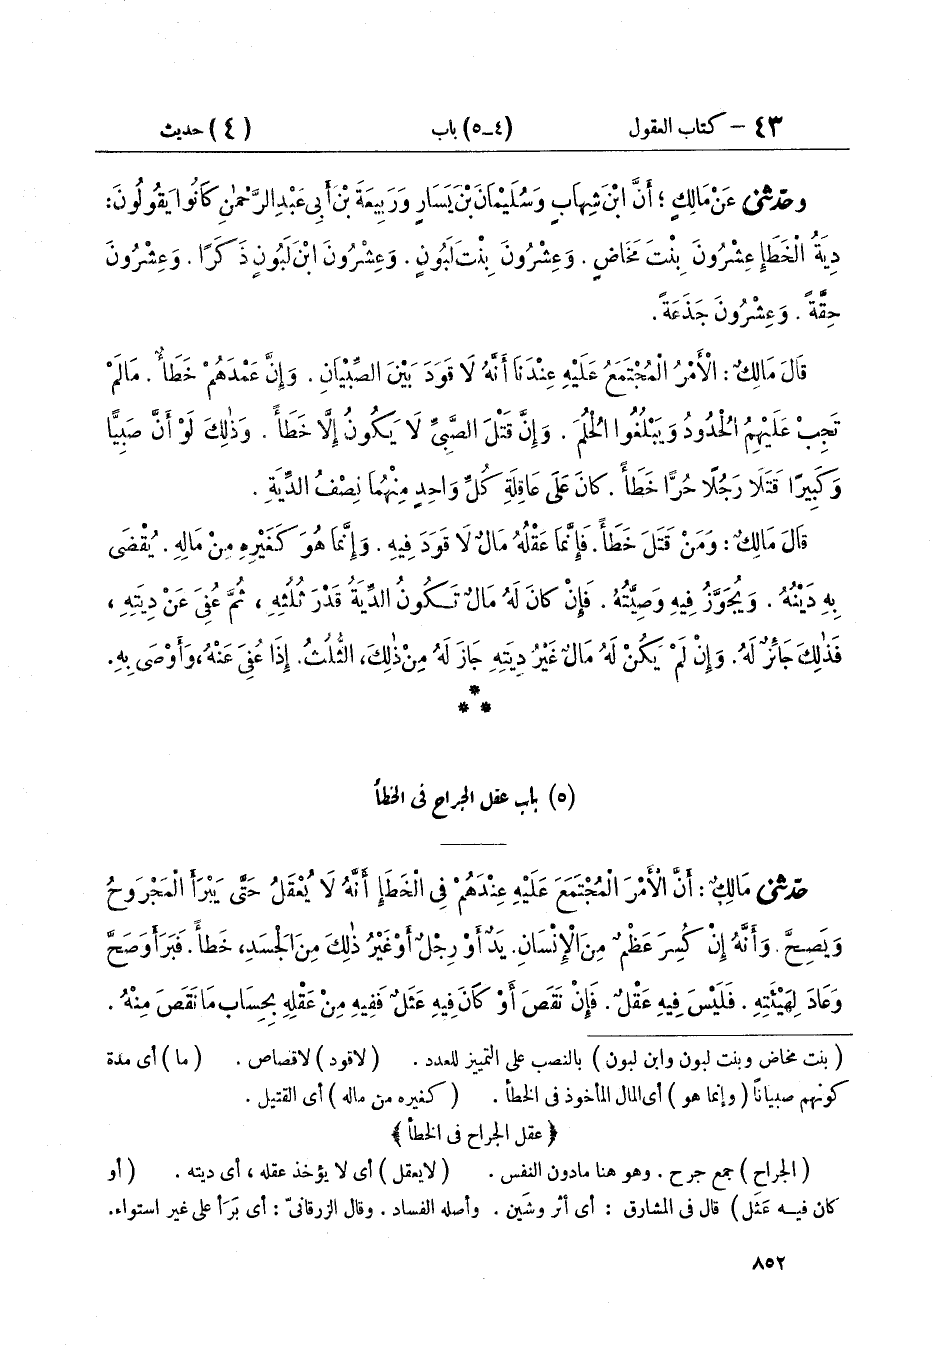 ٤٣ – كتاب العقول (٤ـ٥) باب (٤) حديث
وحدثنى عَنْ مَالِكٍ ؛ أَنَّ ابْنَ شِهَابٍ وَسُلَيْمَانَ بْنَ يَسَارٍ وَرَبِيعَةَ بْنَ أَبِي عَبْدِ الرَّحْمٰنِ كَانُوا يَقُولُونَ:
دِيَةُ الْخَطَإِ عِشْرُونَ بِنْتَ مَخَاضٍ . وَعِشْرُونَ بِنْتَ لَبُونٍ . وَعِشْرُونَ ابْنَ لَبُونٍ ذَكَرًا . وَعِشْرُونَ
حِقَّةً . وَعِشْرُونَ جَذَعَةً .
قَالَ مَالِكٌ : الْأَمْرُ الْمُجْتَمَعُ عَلَيْهِ عِنْدَنَا أَنَّهُ لَا قَوَدَ بَيْنَ الصِّبْيَانِ . وَإِنَّ عَمْدَهُمْ خَطَأٌ . مَا لَمْ
تَجِبْ عَلَيْهِمُ الْحُدُودُ وَيَبْلُغُوا الْحُلُمَ . وَإِنَّ قَتْلَ الصَّبِيِّ لَا يَكُونُ إِلَّا خَطَأً . وَذٰلِكَ لَوْ أَنَّ صَبِيًّا
وَكَبِيرًا قَتَلَا رَجُلًا حُرًّا خَطَأً . كَانَ عَلَى عَاقِلَةِ كُلِّ وَاحِدٍ مِنْهُمَا نِصْفُ الدِّيَةِ .
قَالَ مَالِكٌ : وَمَنْ قَتَلَ خَطَأً . فَإِنَّمَا عَقْلُهُ مَالٌ لَا قَوَدَ فِيهِ . وَإِنَّمَا هُوَ كَغَيْرِهِ مِنْ مَالِهِ . يُقْضَى
بِهِ دَيْنُهُ . وَيُجَوَّزُ فِيهِ وَصِيَّتُهُ . فَإِنْ كَانَ لَهُ مَالٌ تَكُونُ الدِّيَةُ قَدْرَ ثُلُثِهِ ، ثُمَّ عُفِىَ عَنْ دِيَتِهِ ،
فَذٰلِكَ جَائِزٌ لَهُ. وَإِنْ لَمْ يَكُنْ لَهُ مَالٌ غَيْرُ دِيَتِهِ جَازَ لَهُ مِنْ ذٰلِكَ، الثُّلُثُ. إِذَا عُفِىَ عَنْهُ، وَأَوْصَى بِهِ.
*
* *
(٥) باب عقل الجراح فى الخطأ
حدثنى مَالِكٌ : أَنَّ الْأَمْرَ الْمُجْتَمَعَ عَلَيْهِ عِنْدَهُمْ فِى الْخَطَإِ أَنَّهُ لَا يُعْقَلُ حَتَّى يَبْرَأَ الْمَجْرُوحُ
وَيَصِحَّ . وَأَنَّهُ إِنْ كُسِرَ عَظْمٌ مِنَ الْإِنْسَانِ. يَدٌ أَوْ رِجْلٌ أَوْ غَيْرُ ذٰلِكَ مِنَ الْجَسَدِ، خَطَأً. فَبَرَأَ وَصَحَّ
وَعَادَ لِهَيْئَتِهِ . فَلَيْسَ فِيهِ عَقْلٌ . فَإِنْ نَقَصَ أَوْ كَانَ فِيهِ عَثَلٌ فَفِيهِ مِنْ عَقْلِهِ بِحِسَابِ مَا نَقَصَ مِنْهُ .
( بنت مخاض وبنت لبون وابن لبون ) بالنصب على التمييز للعدد . ( لاقود ) لاقصاص . ( ما ) أى مدة
كونهم صبياناً ( وإنما هو ) أى المال المأخوذ فى الخطأ . ( كغيره من ماله ) أى القتيل .
﴿ عقل الجراح فى الخطأ ﴾
( الجراح ) جمع جرح . وهو هنا مادون النفس . ( لايعقل ) أى لا يؤخذ عقله ، أى ديته . ( أو
كان فيــه عَثَل ) قال فى المشارق : أى أثر وشَين . وأصله الفساد . وقال الزرقانىّ : أى بَرَأ على غير استواء.
٨٥٢